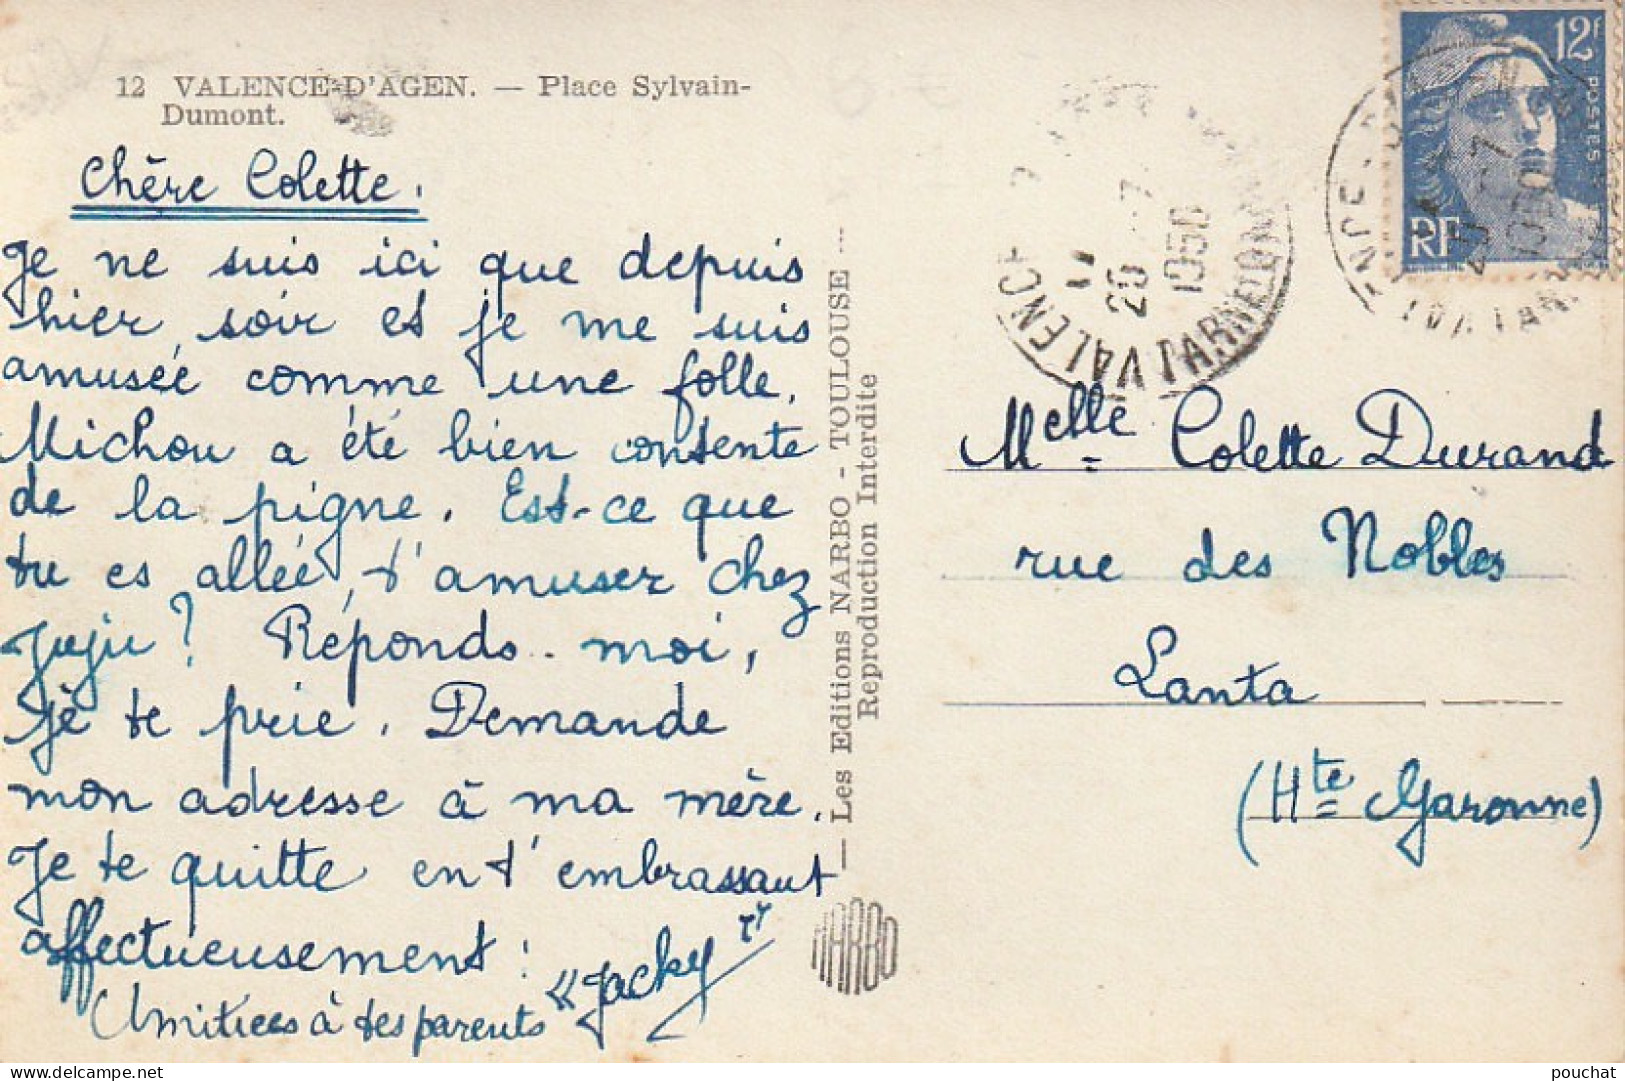 12 VALENCE-D'AGEN. — Place Sylvain-
Dumont.
Chère Colette.
Je ne suis ici que depuis
hier soir et je me suis
amusée comme une folle.
Michou a été bien contente
de la pigne. Est-ce que
tu es allée t'amuser chez
Juju ? Réponds-moi,
je te prie. Demande
mon adresse à ma mère.
Je te quitte en t'embrassant
affectueusement :
Amitiées à tes parents "Jacky"
— Les Editions NARBO - TOULOUSE —
Reproduction Interdite
NARBO
12F
POSTES
RF
VALENCE
11
20 - 7
1950
TARN
Melle Colette Durand
rue des Nobles
Lanta
(Hte Garonne)
pouchat